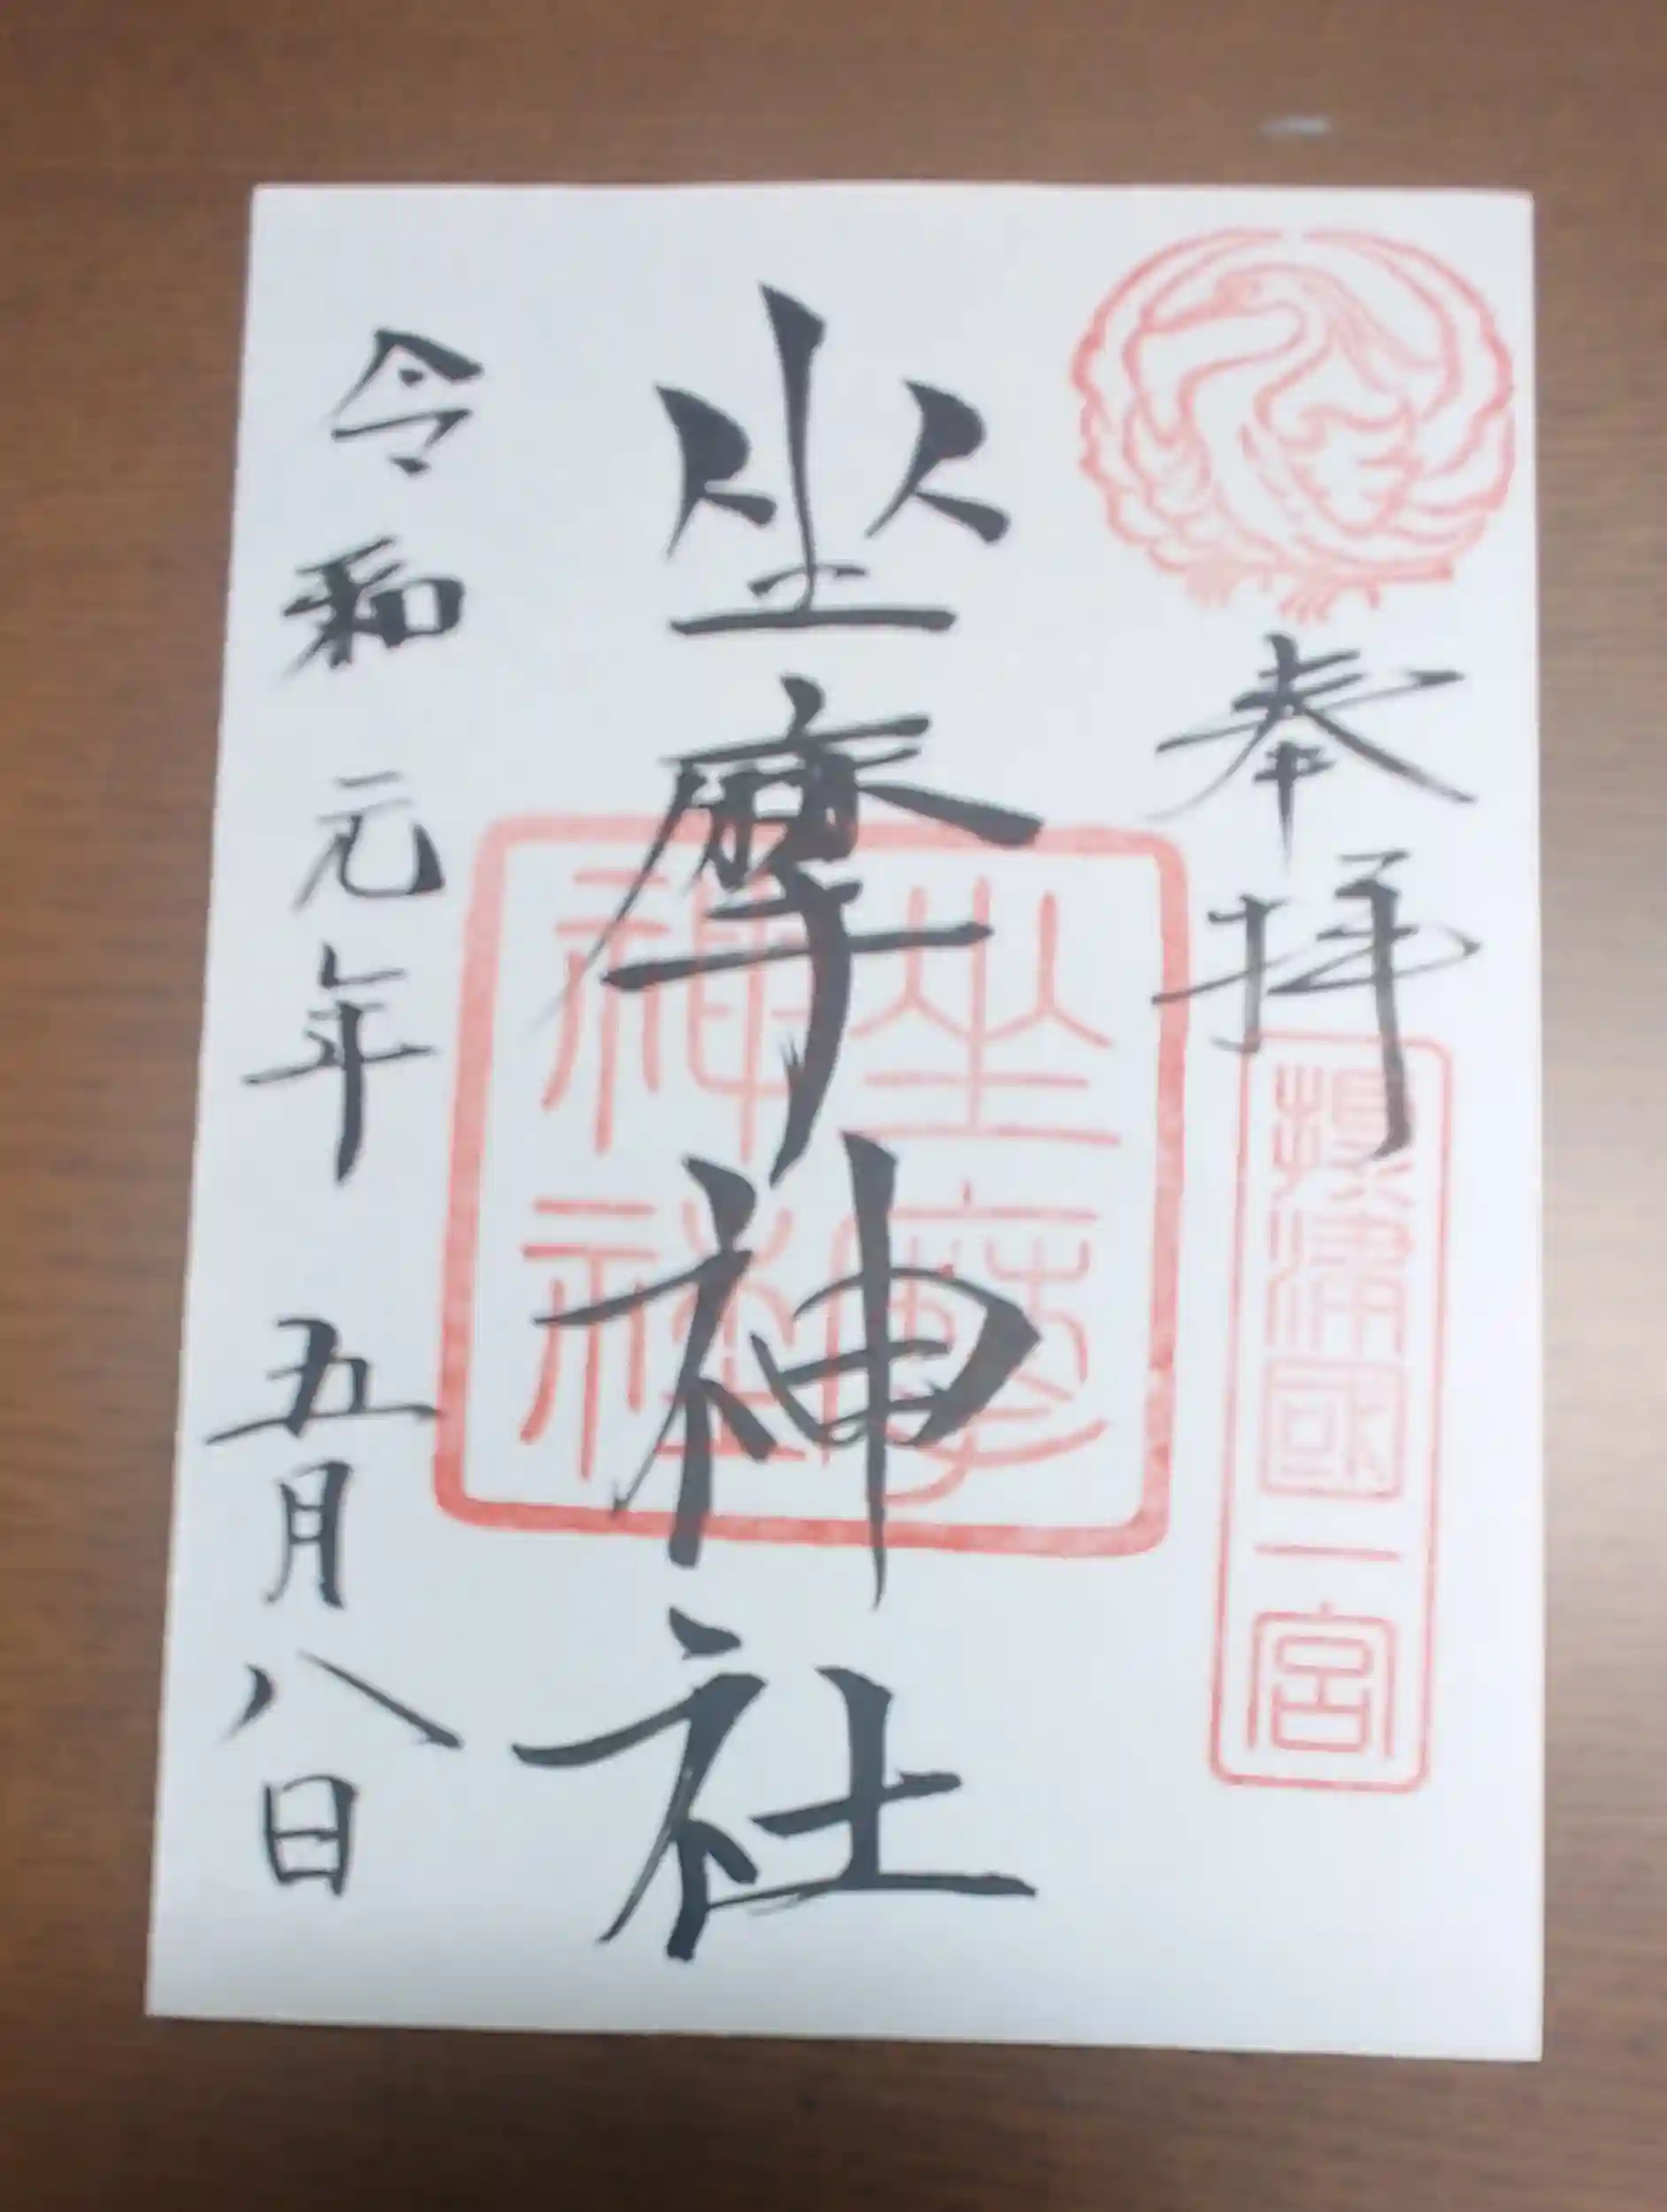 奉拝
攝津國一宮
坐摩神社
坐摩神社
令和元年 五月八日